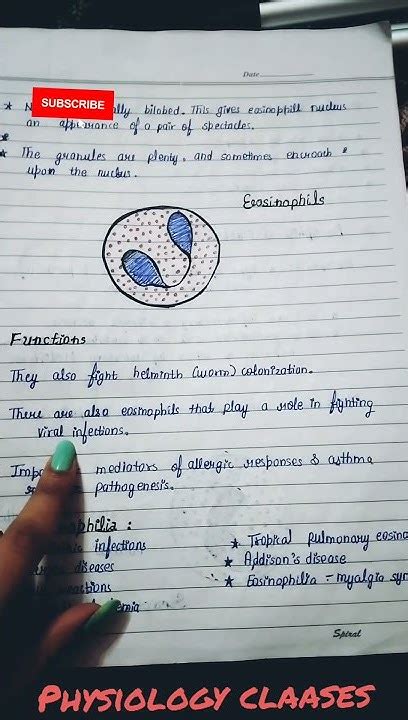 Date
SUBSCRIBE
bilobed. This gives eosinophill nucleus
an appearance of a pair of spectacles.
The granules are plenty, and sometimes encroach
upon the nucleus.
Eosinophils
Functions
They also fight helminth (worm) colonization.
There are also eosinophils that play a role in fighting
viral infections.
mediators of allergic responses & asthma
pathogenesis.
infections
diseases
★ Tropical Pulmonary eosino
★ Addison's disease
★ Eosinophilia - myalgia syn
Spiral
PHYSIOLOGY CLAASES